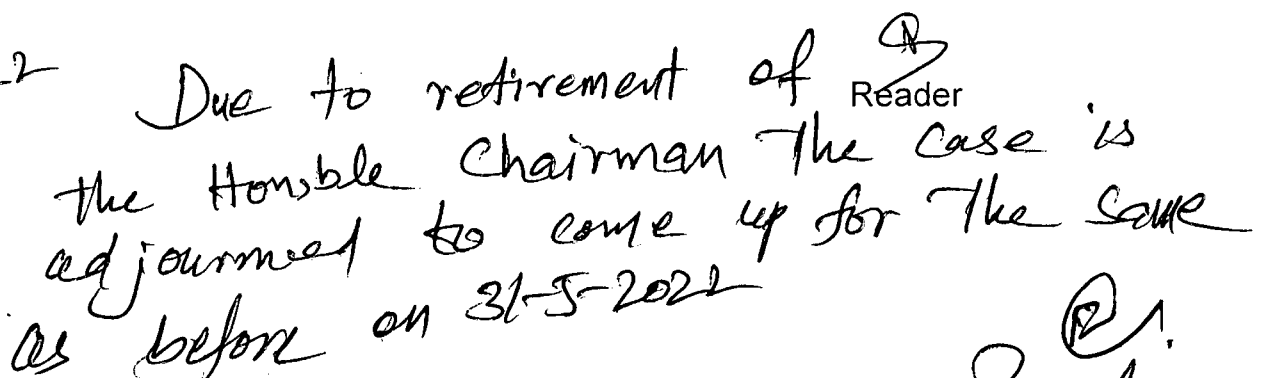 Due to retirement of
Reader
the Hon,ble Chairman The case is
adjourned to come up for The same
as before on 31-5-2022